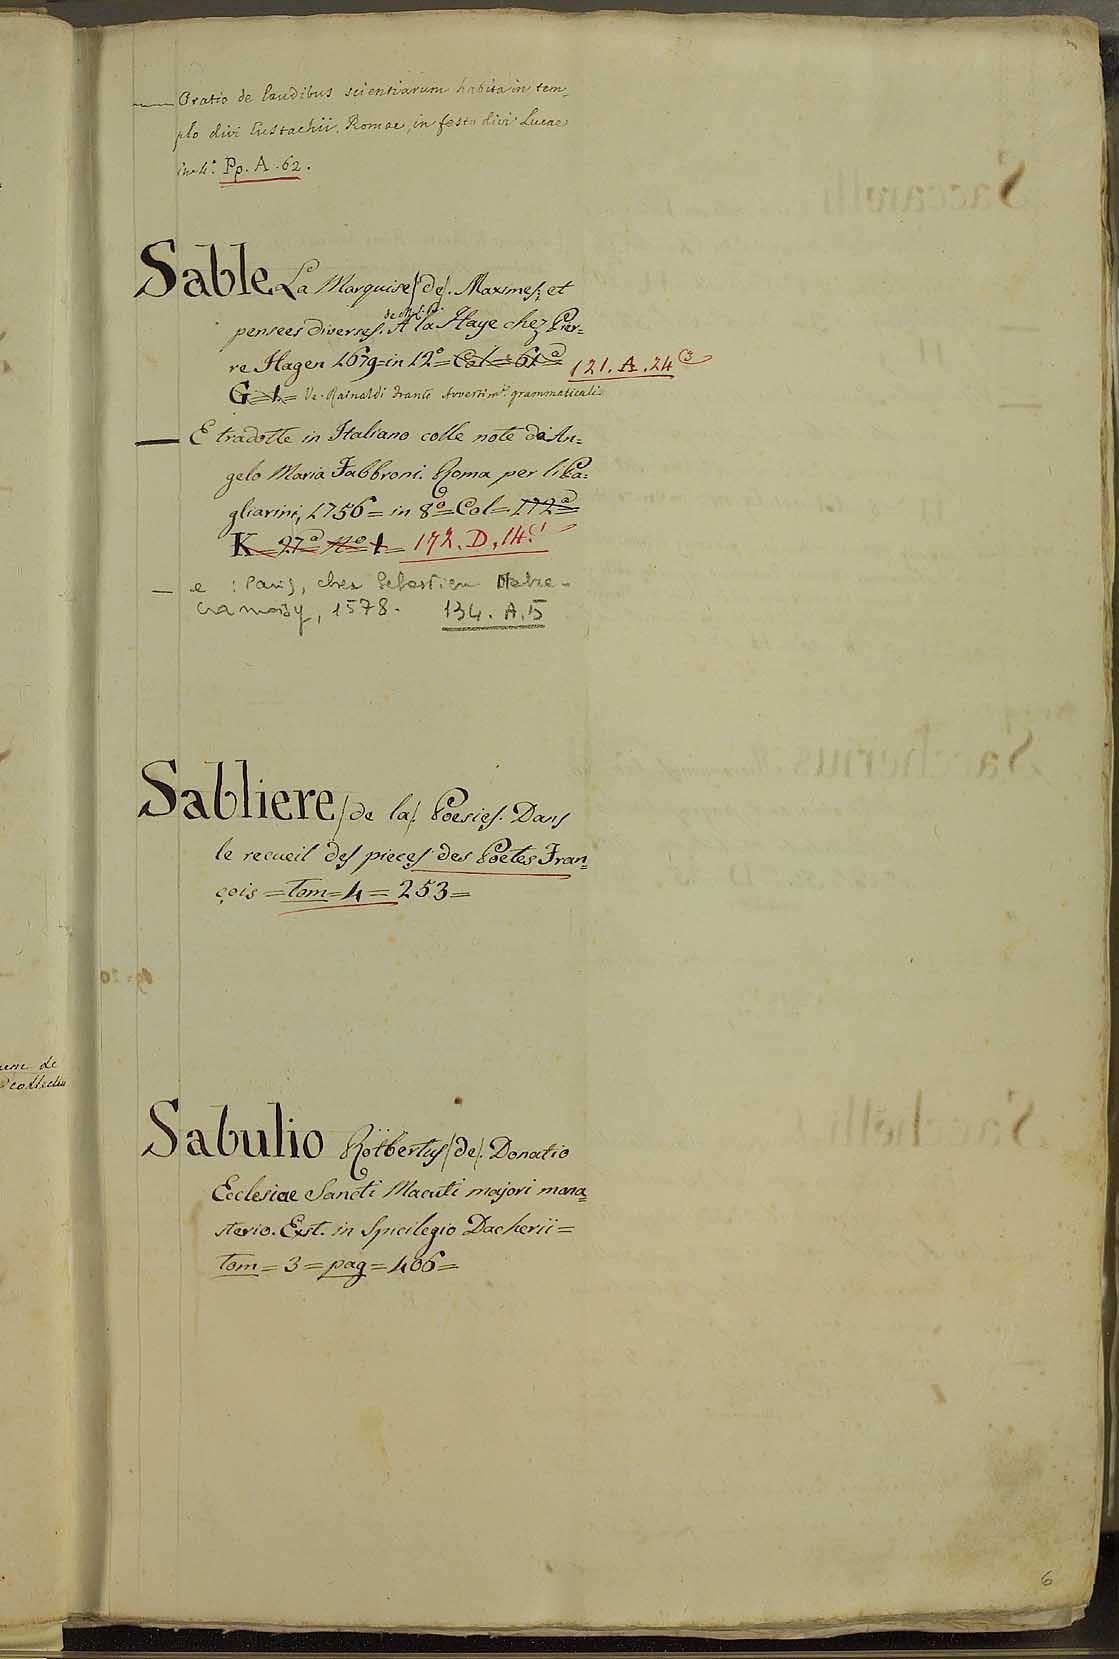 — Oratio de laudibus scientiarum habita in tem=
plo divi Eustachii. Romae, in festo divi Lucae
in 4.° Pp. A. 62.
Sable La Marquise /de/. Maximes, et
pensees diverses. A la Haye chez Pier=
re Hagen 1679=in 12°= Col = 61ª 121. A. 24 ③
G = 1 = Ve. Rainaldi Avvertim.ti grammaticali=
— E tradotte in Italiano colle note di An=
gelo Maria Fabbroni. Roma per li Pa=
gliarini, 1756 = in 8°= Col = 172ª
K = 27ª n° 1 = 172. D. 14.1
— e : Paris, chez Sebastien Mabre-
Cramoisy, 1578. 134. A. 5
Sabliere /de la/ Poesies. Dans
le recueil des pieces des Poetes Fran=
çois = Tom = 4 = 253 =
Sabulio Rotbertus /de/. Donatio
Ecclesiae Sancti Macuti majori mona=
sterio. Ext. in Spicilegio Dacherii =
Tom = 3 = pag = 406 =
6